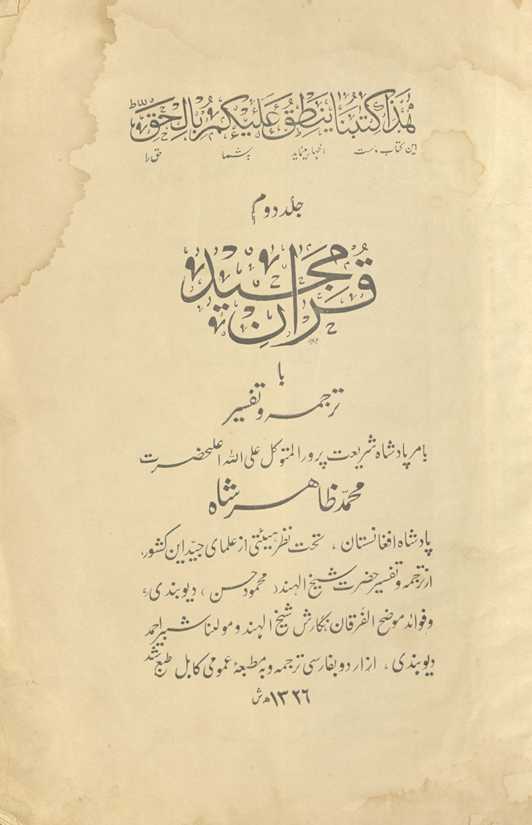 هٰذَا كِتٰبُنَا يَنْطِقُ عَلَيْكُمْ بِالْحَقِّ
این کتاب ماست اظهار مینماید بشما حق را
جلد دوم
قُرْاٰنِ مَجِیْد
با
ترجمه و تفسیر
بامر پادشاه شریعت پرور المتوکل علی الله اعلیحضرت
محمد ظاهر شاه
پادشاه افغانستان ، تحت نظر هیئتی از علمای جیّد این کشور،
از ترجمه و تفسیر حضرت شیخ الهند، محمود حسن ، دیوبندیؒ
و فوائد موضح الفرقان نگارش شیخ الهند و مولٰنا شبیر احمد
دیوبندی ، از اردو بفارسی ترجمه و به مطبعهٔ عمومی کابل طبع شد
۱۳۲۶ ه ش